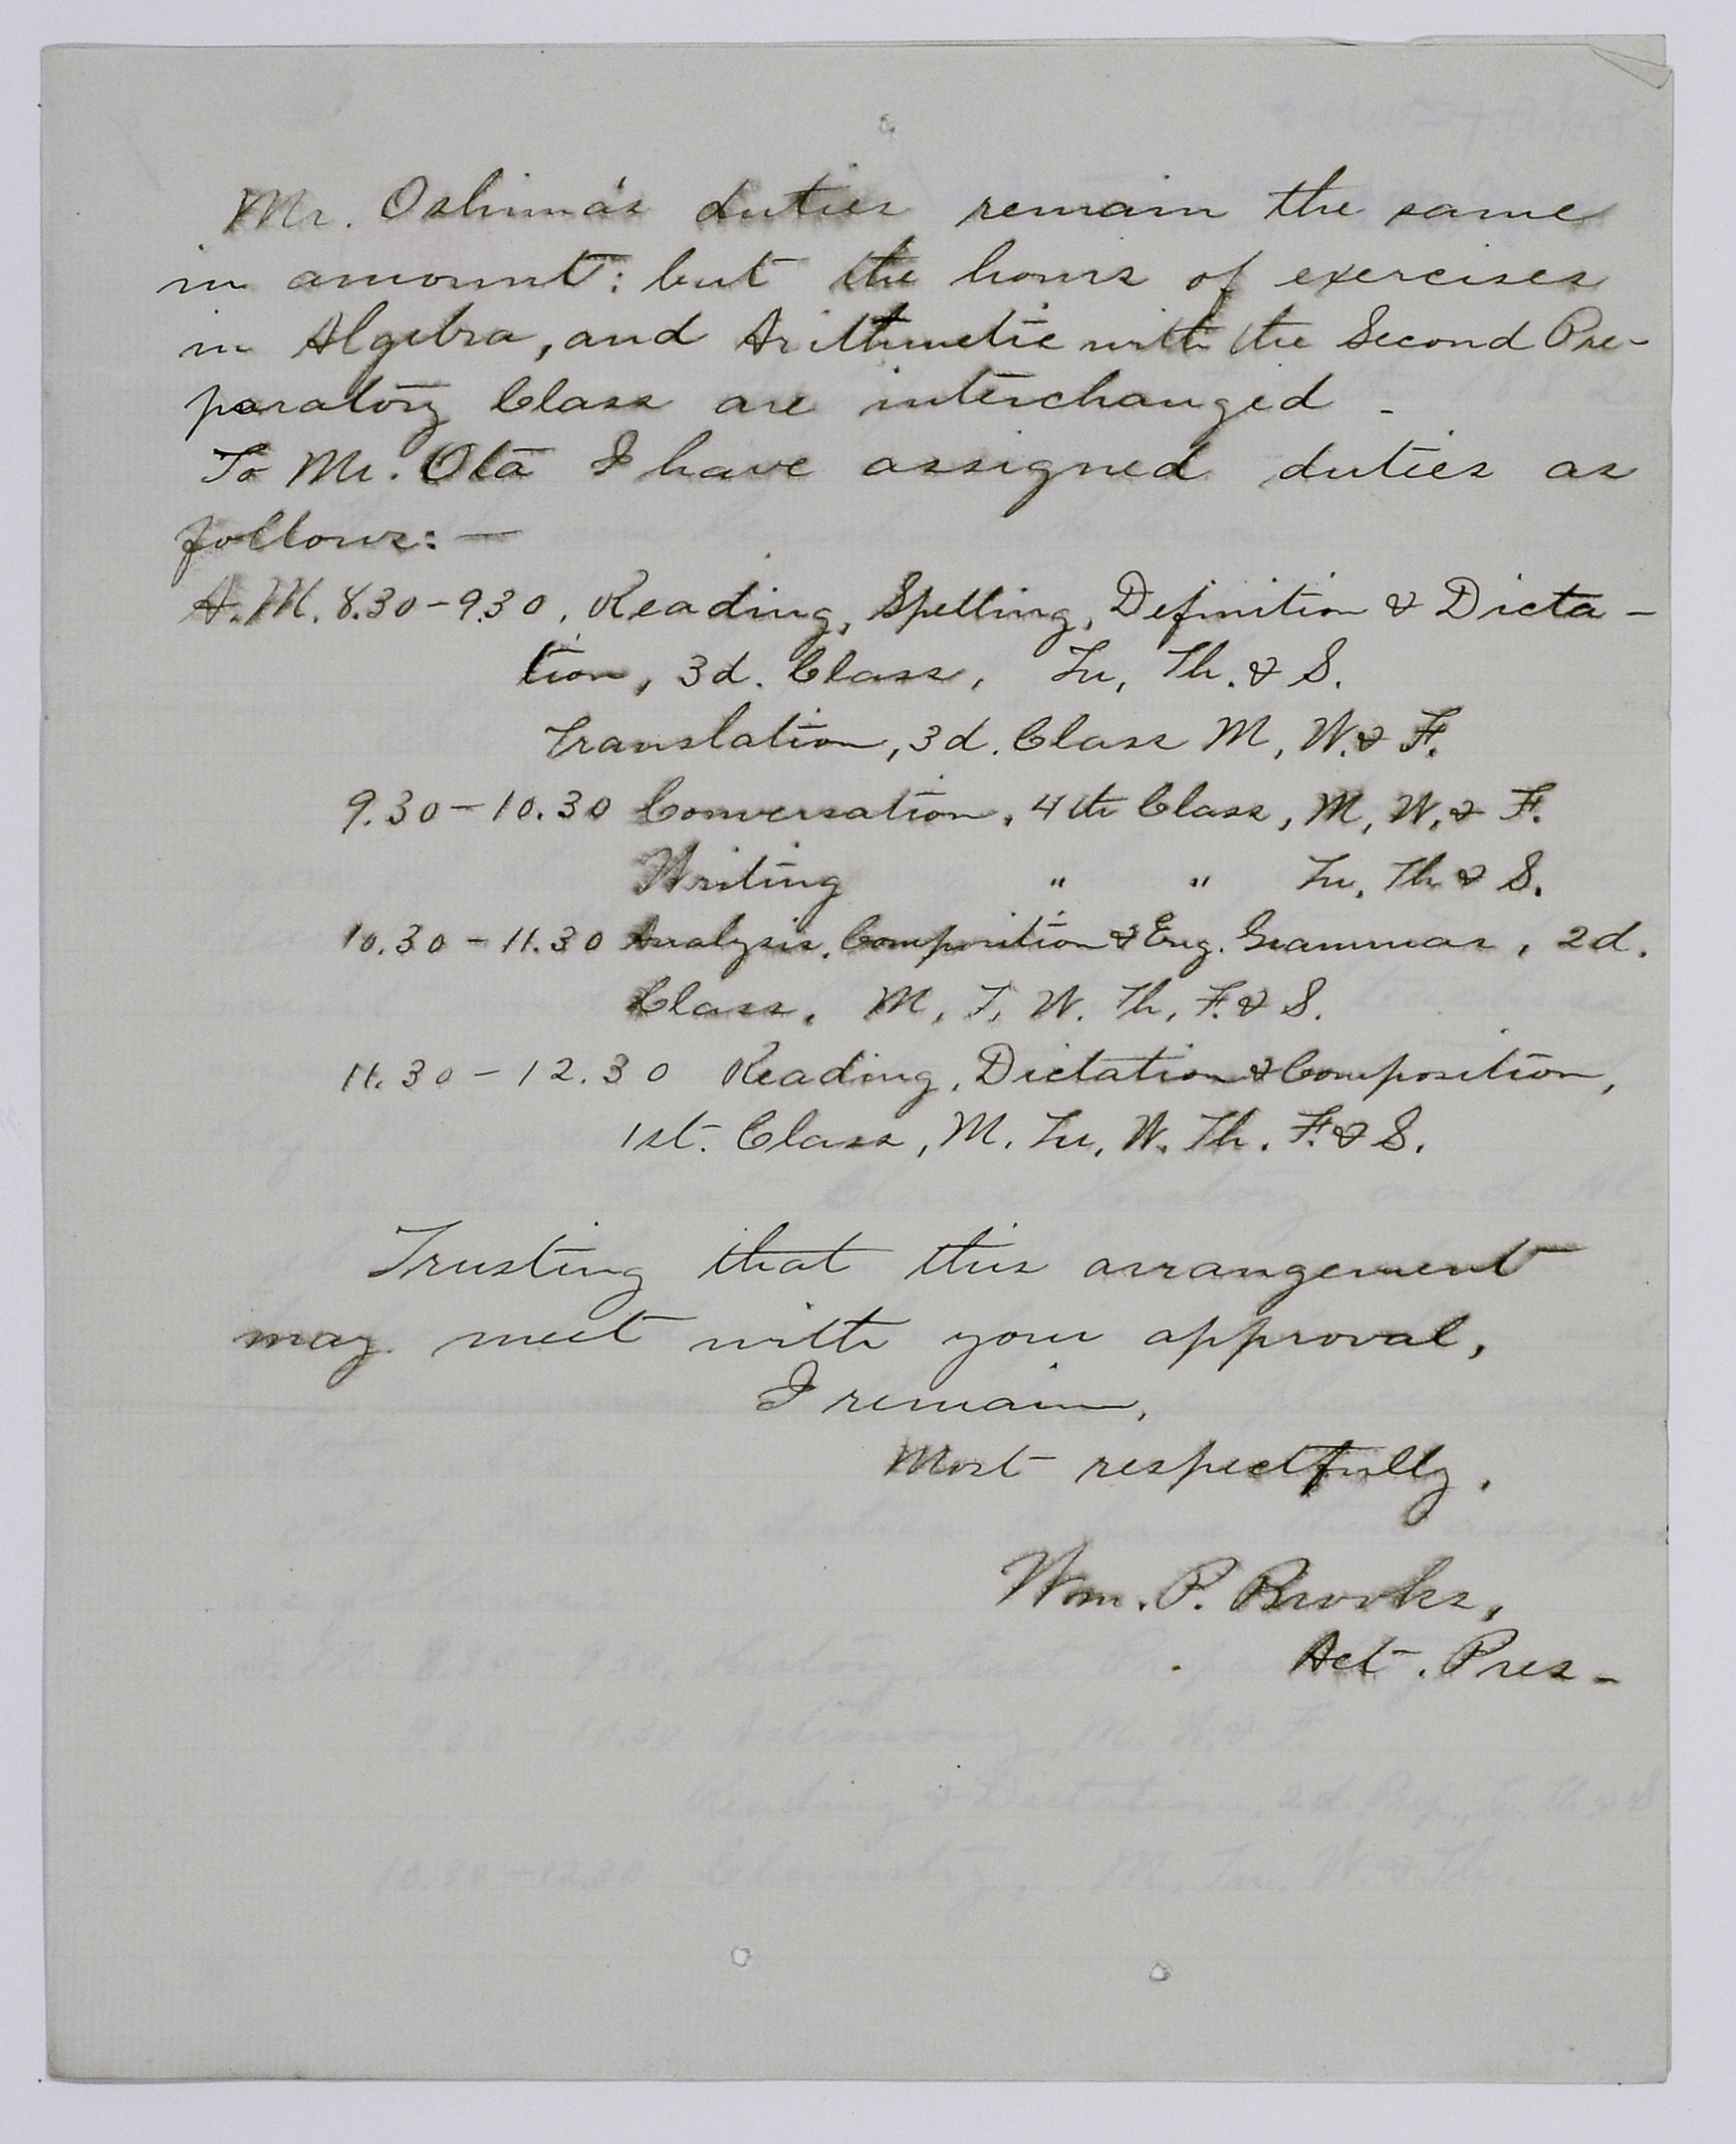 Mr. Oshima's duties remain the same
in amount: but the hours of exercises
in Algebra, and Arithmetic with the Second Pre-
paratory Class are interchanged -
To Mr. Ota I have assigned duties as
follows: —
A.M. 8.30-9.30, Reading, Spelling, Definition & Dicta-
tion, 3d. Class, Tu, Th. & S.
Translation, 3d. Class M, W. & F.
9.30-10.30 Conversation, 4th Class, M, W. & F.
Writing " " Tu, Th & S.
10.30-11.30 Analysis, Composition & Eng. Grammar, 2d.
Class, M, T, W. Th, F. & S.
11.30-12.30 Reading, Dictation & Composition,
1st. Class, M. Tu, W. Th. F. & S.
Trusting that this arrangement
may meet with your approval,
I remain,
Most respectfully,
Wm. P. Brooks,
Act. Pres-
9.30-10.30 Astronomy, M. W. & F.
Reading & Dictation, 2d. Prep., Tu. Th. & S
10.30-12.30 Chemistry, M. Tu. W. & Th.